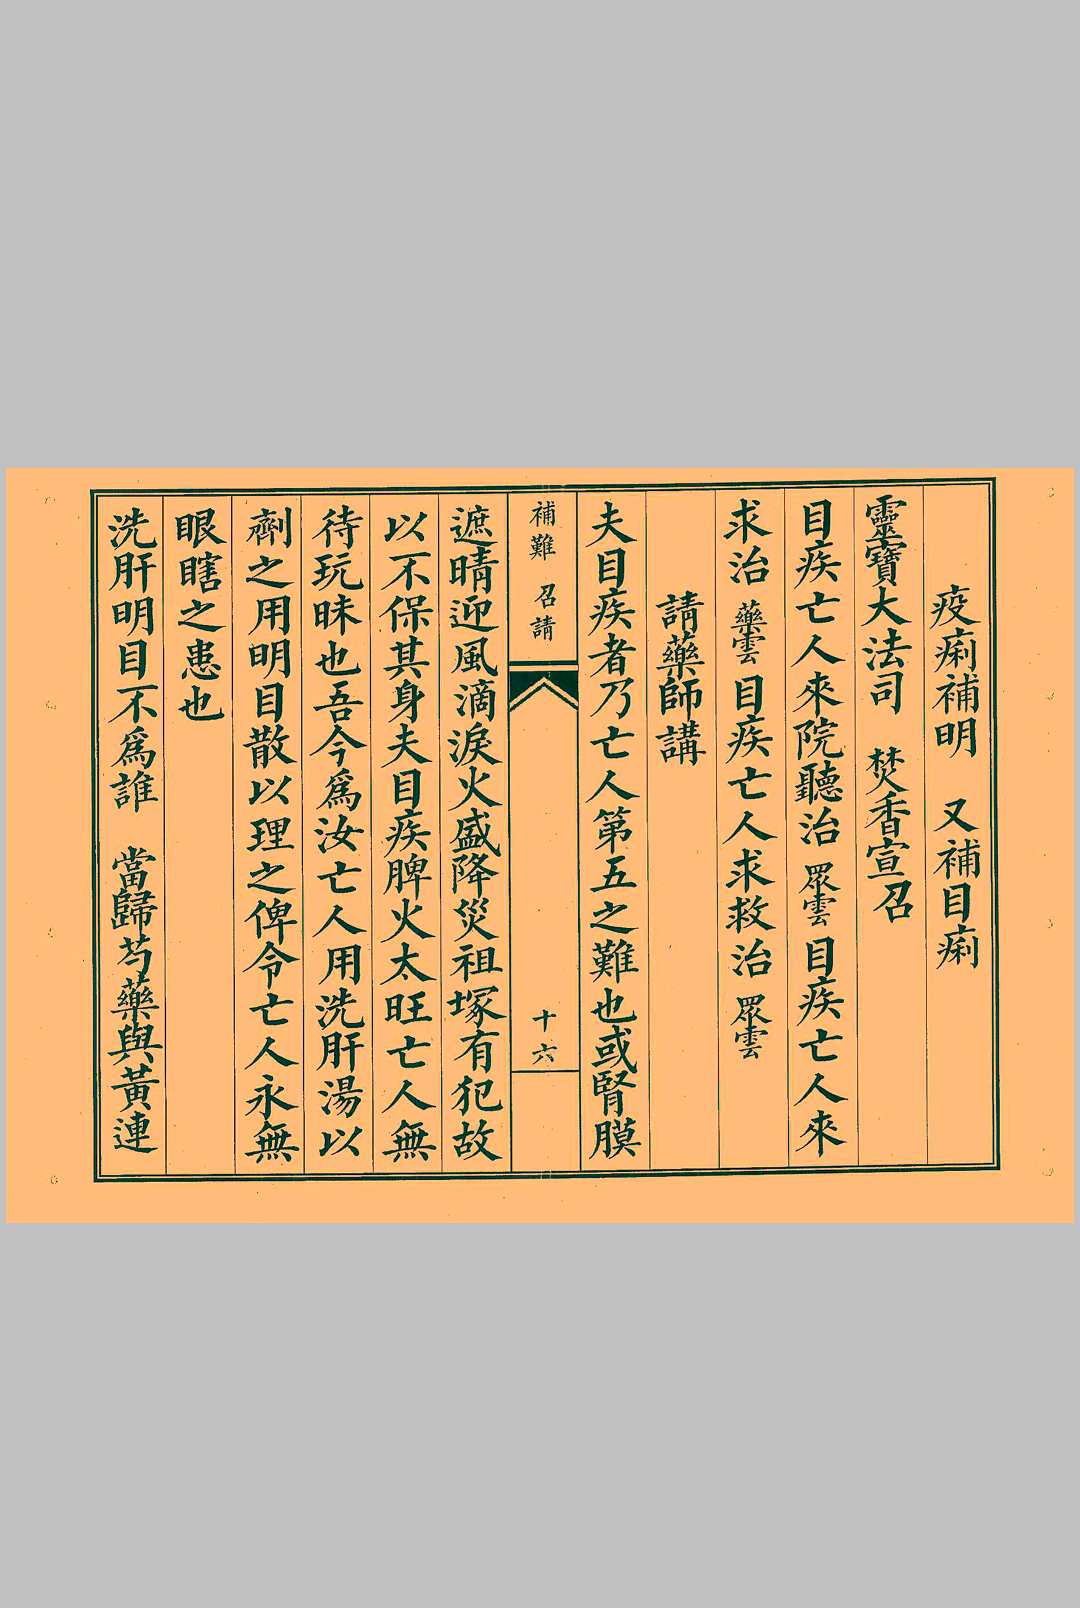 疫痢補明　又補目痢
靈寶大法司　焚香宣召
目疾亡人來院聽治 眾雲 目疾亡人來
求治 藥雲 目疾亡人求救治 眾雲
請藥師講
夫目疾者乃亡人第五之難也或腎膜
補難　召請　十六
遮晴迎風滴淚火盛降災祖塚有犯故
以不保其身夫目疾脾火太旺亡人無
待玩昧也吾今爲汝亡人用洗肝湯以
劑之用明目散以理之俾令亡人永無
眼瞎之患也
洗肝明目不爲誰　當歸芍藥與黃連